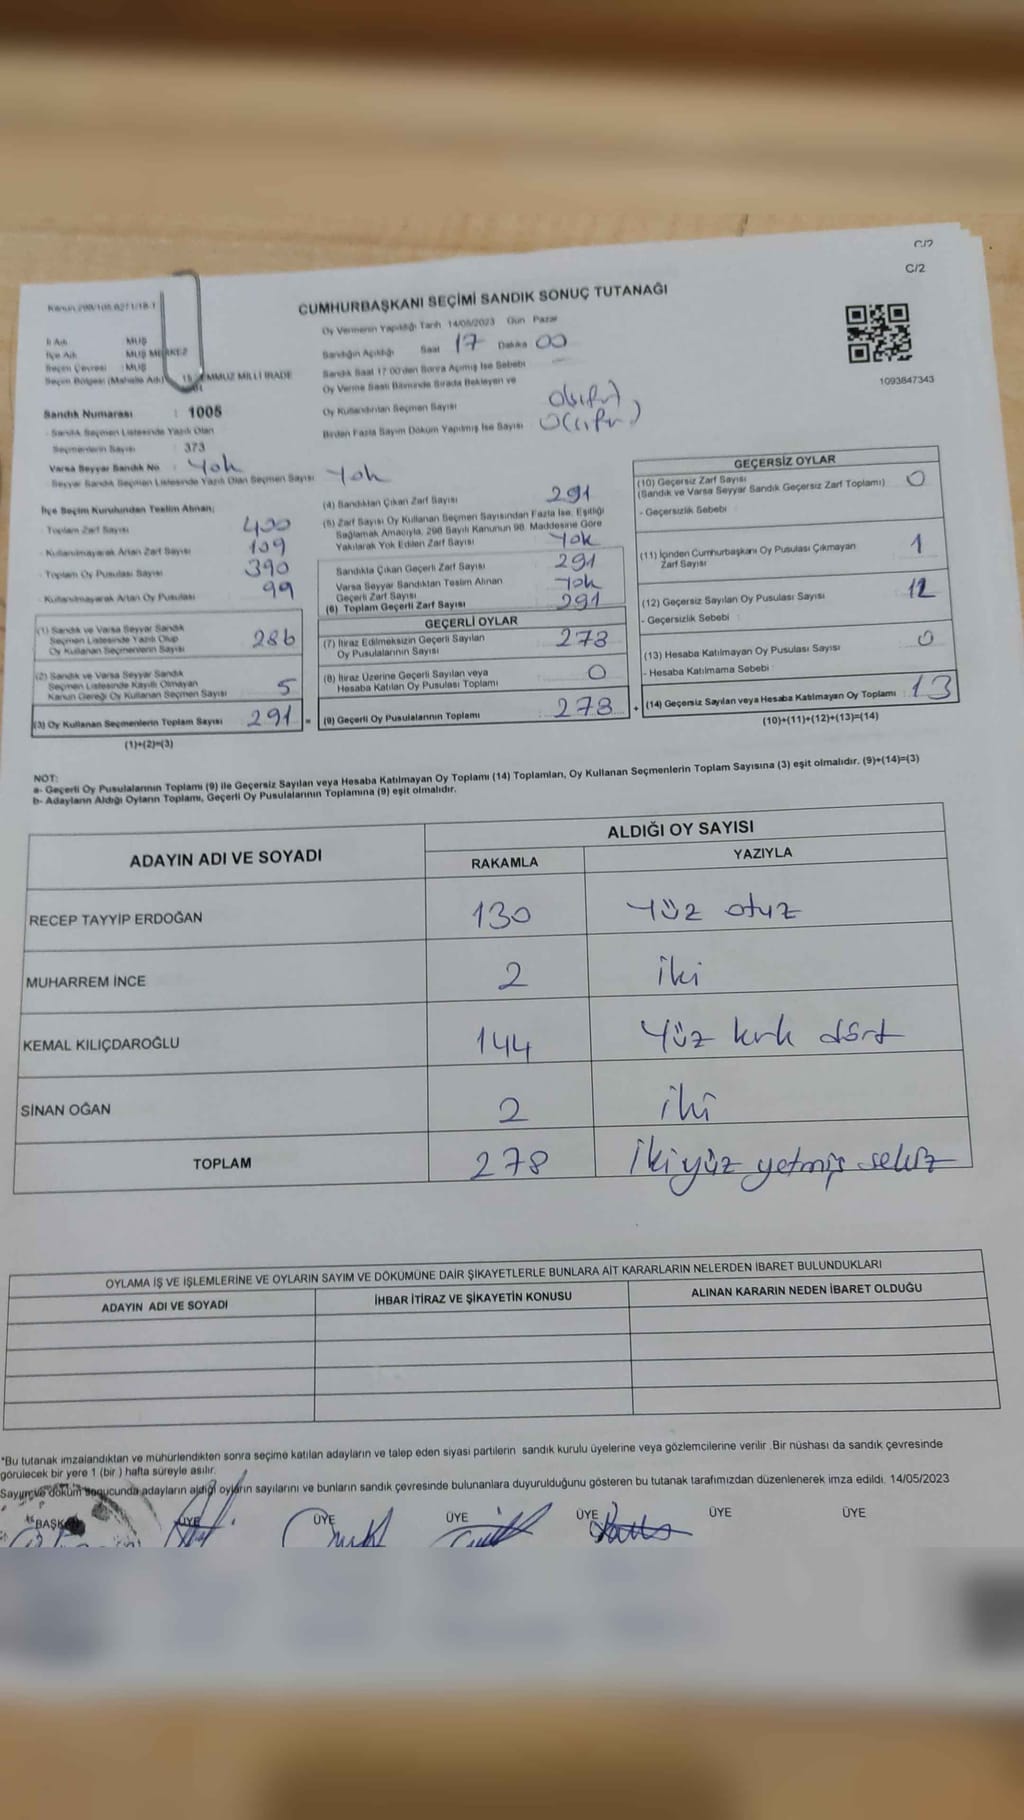 C/2
C/2
CUMHURBAŞKANI SEÇİMİ SANDIK SONUÇ TUTANAĞI
Oy Vermenin Yapıldığı Tarih 14/05/2023 Gün Pazar
Sandığın Açıldığı Saat 17 Dakika 00
Sandık Saat 17:00'den Sonra Açılmış İse Sebebi
Oy Verme Saati Bitiminde Sırada Bekleyen ve
Oy Kullandırılan Seçmen Sayısı 0(sıfır)
Birden Fazla Sayım Döküm Yapılmış İse Sayısı 0(sıfır)
1093847343
İl Adı MUŞ
İlçe Adı MUŞ MERKEZ
Seçim Çevresi : MUŞ
Seçim Bölgesi (Mahalle Adı) 15 MİLLİ İRADE
Sandık Numarası : 1005
- Sandık Seçmen Listesinde Yazılı Olan
Seçmenlerin Sayısı : 373
Varsa Seyyar Sandık No : Yok
Seyyar Sandık Seçmen Listesinde Yazılı Olan Seçmen Sayısı Yok
İlçe Seçim Kurulundan Teslim Alınan;
- Toplam Zarf Sayısı 400
- Kullanılmayarak Artan Zarf Sayısı 109
- Toplam Oy Pusulası Sayısı 390
- Kullanılmayarak Artan Oy Pusulası 99
(1) Sandık ve Varsa Seyyar Sandık
Seçmen Listesinde Yazılı Olup
Oy Kullanan Seçmenlerin Sayısı 286
(2) Sandık ve Varsa Seyyar Sandık
Seçmen Listesinde Kayıtlı Olmayan
Kanun Gereği Oy Kullanan Seçmen Sayısı 5
(3) Oy Kullanan Seçmenlerin Toplam Sayısı 291 =
(1)+(2)=(3)
(4) Sandıktan Çıkan Zarf Sayısı 291
(5) Zarf Sayısı Oy Kullanan Seçmen Sayısından Fazla İse, Eşitliği
Sağlamak Amacıyla, 298 Sayılı Kanunun 98. Maddesine Göre
Yakılarak Yok Edilen Zarf Sayısı Yok
Sandıkta Çıkan Geçerli Zarf Sayısı 291
Varsa Seyyar Sandıktan Teslim Alınan
Geçerli Zarf Sayısı Yok
(6) Toplam Geçerli Zarf Sayısı 291
GEÇERLİ OYLAR
(7) İtiraz Edilmeksizin Geçerli Sayılan
Oy Pusulalarının Sayısı 278
(8) İtiraz Üzerine Geçerli Sayılan veya
Hesaba Katılan Oy Pusulası Toplamı 0
(9) Geçerli Oy Pusulalarının Toplamı 278 +
GEÇERSİZ OYLAR
(10) Geçersiz Zarf Sayısı
(Sandık ve Varsa Seyyar Sandık Geçersiz Zarf Toplamı) 0
- Geçersizlik Sebebi :
(11) İçinden Cumhurbaşkanı Oy Pusulası Çıkmayan
Zarf Sayısı 1
(12) Geçersiz Sayılan Oy Pusulası Sayısı 12
- Geçersizlik Sebebi :
(13) Hesaba Katılmayan Oy Pusulası Sayısı 0
- Hesaba Katılmama Sebebi :
(14) Geçersiz Sayılan veya Hesaba Katılmayan Oy Toplamı 13
(10)+(11)+(12)+(13)=(14)
NOT:
a- Geçerli Oy Pusulalarının Toplamı (9) ile Geçersiz Sayılan veya Hesaba Katılmayan Oy Toplamı (14) Toplamları, Oy Kullanan Seçmenlerin Toplam Sayısına (3) eşit olmalıdır. (9)+(14)=(3)
b- Adayların Aldığı Oyların Toplamı, Geçerli Oy Pusulalarının Toplamına (9) eşit olmalıdır.
ADAYIN ADI VE SOYADI
ALDIĞI OY SAYISI
RAKAMLA YAZIYLA
RECEP TAYYİP ERDOĞAN 130 Yüz otuz
MUHARREM İNCE 2 iki
KEMAL KILIÇDAROĞLU 144 Yüz kırk dört
SİNAN OĞAN 2 iki
TOPLAM 278 İkiyüz yetmiş sekiz
OYLAMA İŞ VE İŞLEMLERİNE VE OYLARIN SAYIM VE DÖKÜMÜNE DAİR ŞİKAYETLERLE BUNLARA AİT KARARLARIN NELERDEN İBARET BULUNDUKLARI
ADAYIN ADI VE SOYADI İHBAR İTİRAZ VE ŞİKAYETİN KONUSU ALINAN KARARIN NEDEN İBARET OLDUĞU
*Bu tutanak imzalandıktan ve mühürlendikten sonra seçime katılan adayların ve talep eden siyasi partilerin sandık kurulu üyelerine veya gözlemcilerine verilir .Bir nüshası da sandık çevresinde
görülecek bir yere 1 (bir ) hafta süreyle asılır.
Sayım ve döküm sonucunda adayların aldığı oyların sayılarını ve bunların sandık çevresinde bulunanlara duyurulduğunu gösteren bu tutanak tarafımızdan düzenlenerek imza edildi. 14/05/2023
BAŞKAN ÜYE ÜYE ÜYE ÜYE ÜYE ÜYE